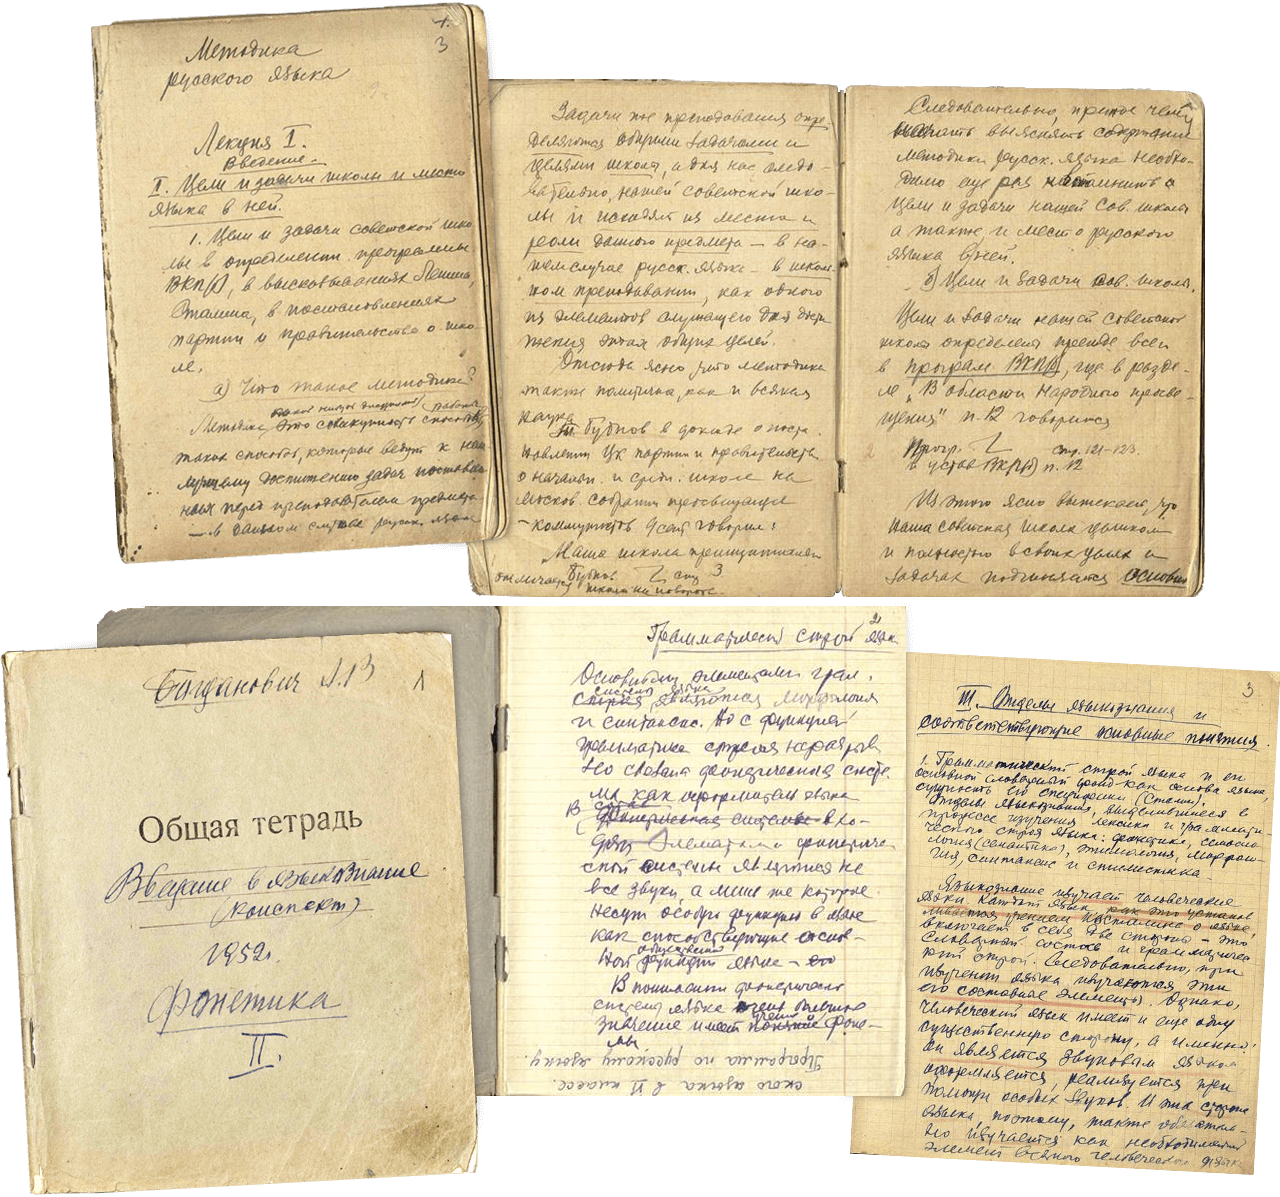 3
Методика
русского языка
Лекция I.
Введение.
II. Цели и задачи школы и место
языка в ней.
1. Цели и задачи советской шко-
лы в определении программы
ВКП(б), в высказываниях Ленина,
Сталина, в постановлениях
партии и правительства о шко-
ле.
а) Что такое методика?
Методика, это совокупность способов
таких способов, которые ведут к наи-
лучшему достижению задач поставлен-
ных перед преподавателем предмета
— в данном случае русск. языка
Задачи преподавания опре-
деляются общими задачами и
целями школы, а для нас следо-
вательно, нашей советской шко-
лы и исходят из места и
роли данного предмета – в на-
шем случае русск. языка – в школь-
ном преподавании, как одного
из элементов служащего для дости
жения этих общих целей.
Отсюда ясно, что методика
также политична, как и всякая
наука.
Бубнов в докладе о поста-
новлении ЦК партии и правительства
о начальн. и средн. школе на
Москов собрании просвещенцев
– коммунистов говорил:
Наша школа принципиально
отличается Бубнов стр 3
Школа на повороте.
Следовательно, прежде чем
начать выяснять содержание
методики русск. языка необхо-
димо еще раз напомнить о
цели и задачи нашей сов. школы
а также и место русского
языка в ней.
б) Цели и задачи сов. школы.
Цели и задачи нашей советской
школы определены прежде всего
в програм ВКП(б), где в разде-
ле "В области народного просве-
щения" п. 12 говорится
Прогр. стр. 121-123
и устав ВКП(б) п. 12
Из этого ясно вытекает, что
наша советская школа целиком
и полностью в своих целях и
задачах подчиняется основн
Богданович А.В
1
Общая тетрадь
Введение в языкознание
(конспект)
1952 г.
Фонетика
II.
2
Грамматическ строй язык
Основными элементами грам.
строя системы языка являются морфология
и синтаксис. Но с функцией
грамматика строя неразрыв
но связана фонетическая систе
ма как оформитель языка
В состав
(фонетическая система) вхо-
дят элементами фонетиче
ской системы являются не
все звуки, а лишь те которые
несут особую функцию в языке
как способствующие основ-
ной общественной функции языка –
В понимании фонетическ
системы языка
значение имеет учение понятие фоне-
мы
Программа по русскому языку.
ского языка в VI классе.
3
III. Отделы языкознания и
соответствующие основные понятия.
1. Грамматический строй языка и его
основной словарный фонд – как основа языка,
сущность его специфики (Сталин).
Отделы языкознания, выделившиеся в
процессе изучения лексики и граммати-
ческого строя языка: фонетика, семасио-
логия (семантика), этимология, морфоло-
гия, синтаксис и стилистика.
Языкознание изучает человеческие
языки. Каждый язык, как это установ
ливается учением И. Сталина о языке,
включает в себя две стороны – это
словарный состав и грамматичес
кий строй. Следовательно, при
изучении языка изучаются эти
его составные элементы. Однако,
человеческий язык имеет и еще одну
существенную сторону, а именно:
он является звуковым языком
оформляется, реализуется при
помощи особых звуков. И эта сторона
языка, поэтому, также обязатель-
но изучается как необходимый
элемент всякого человеческого языка